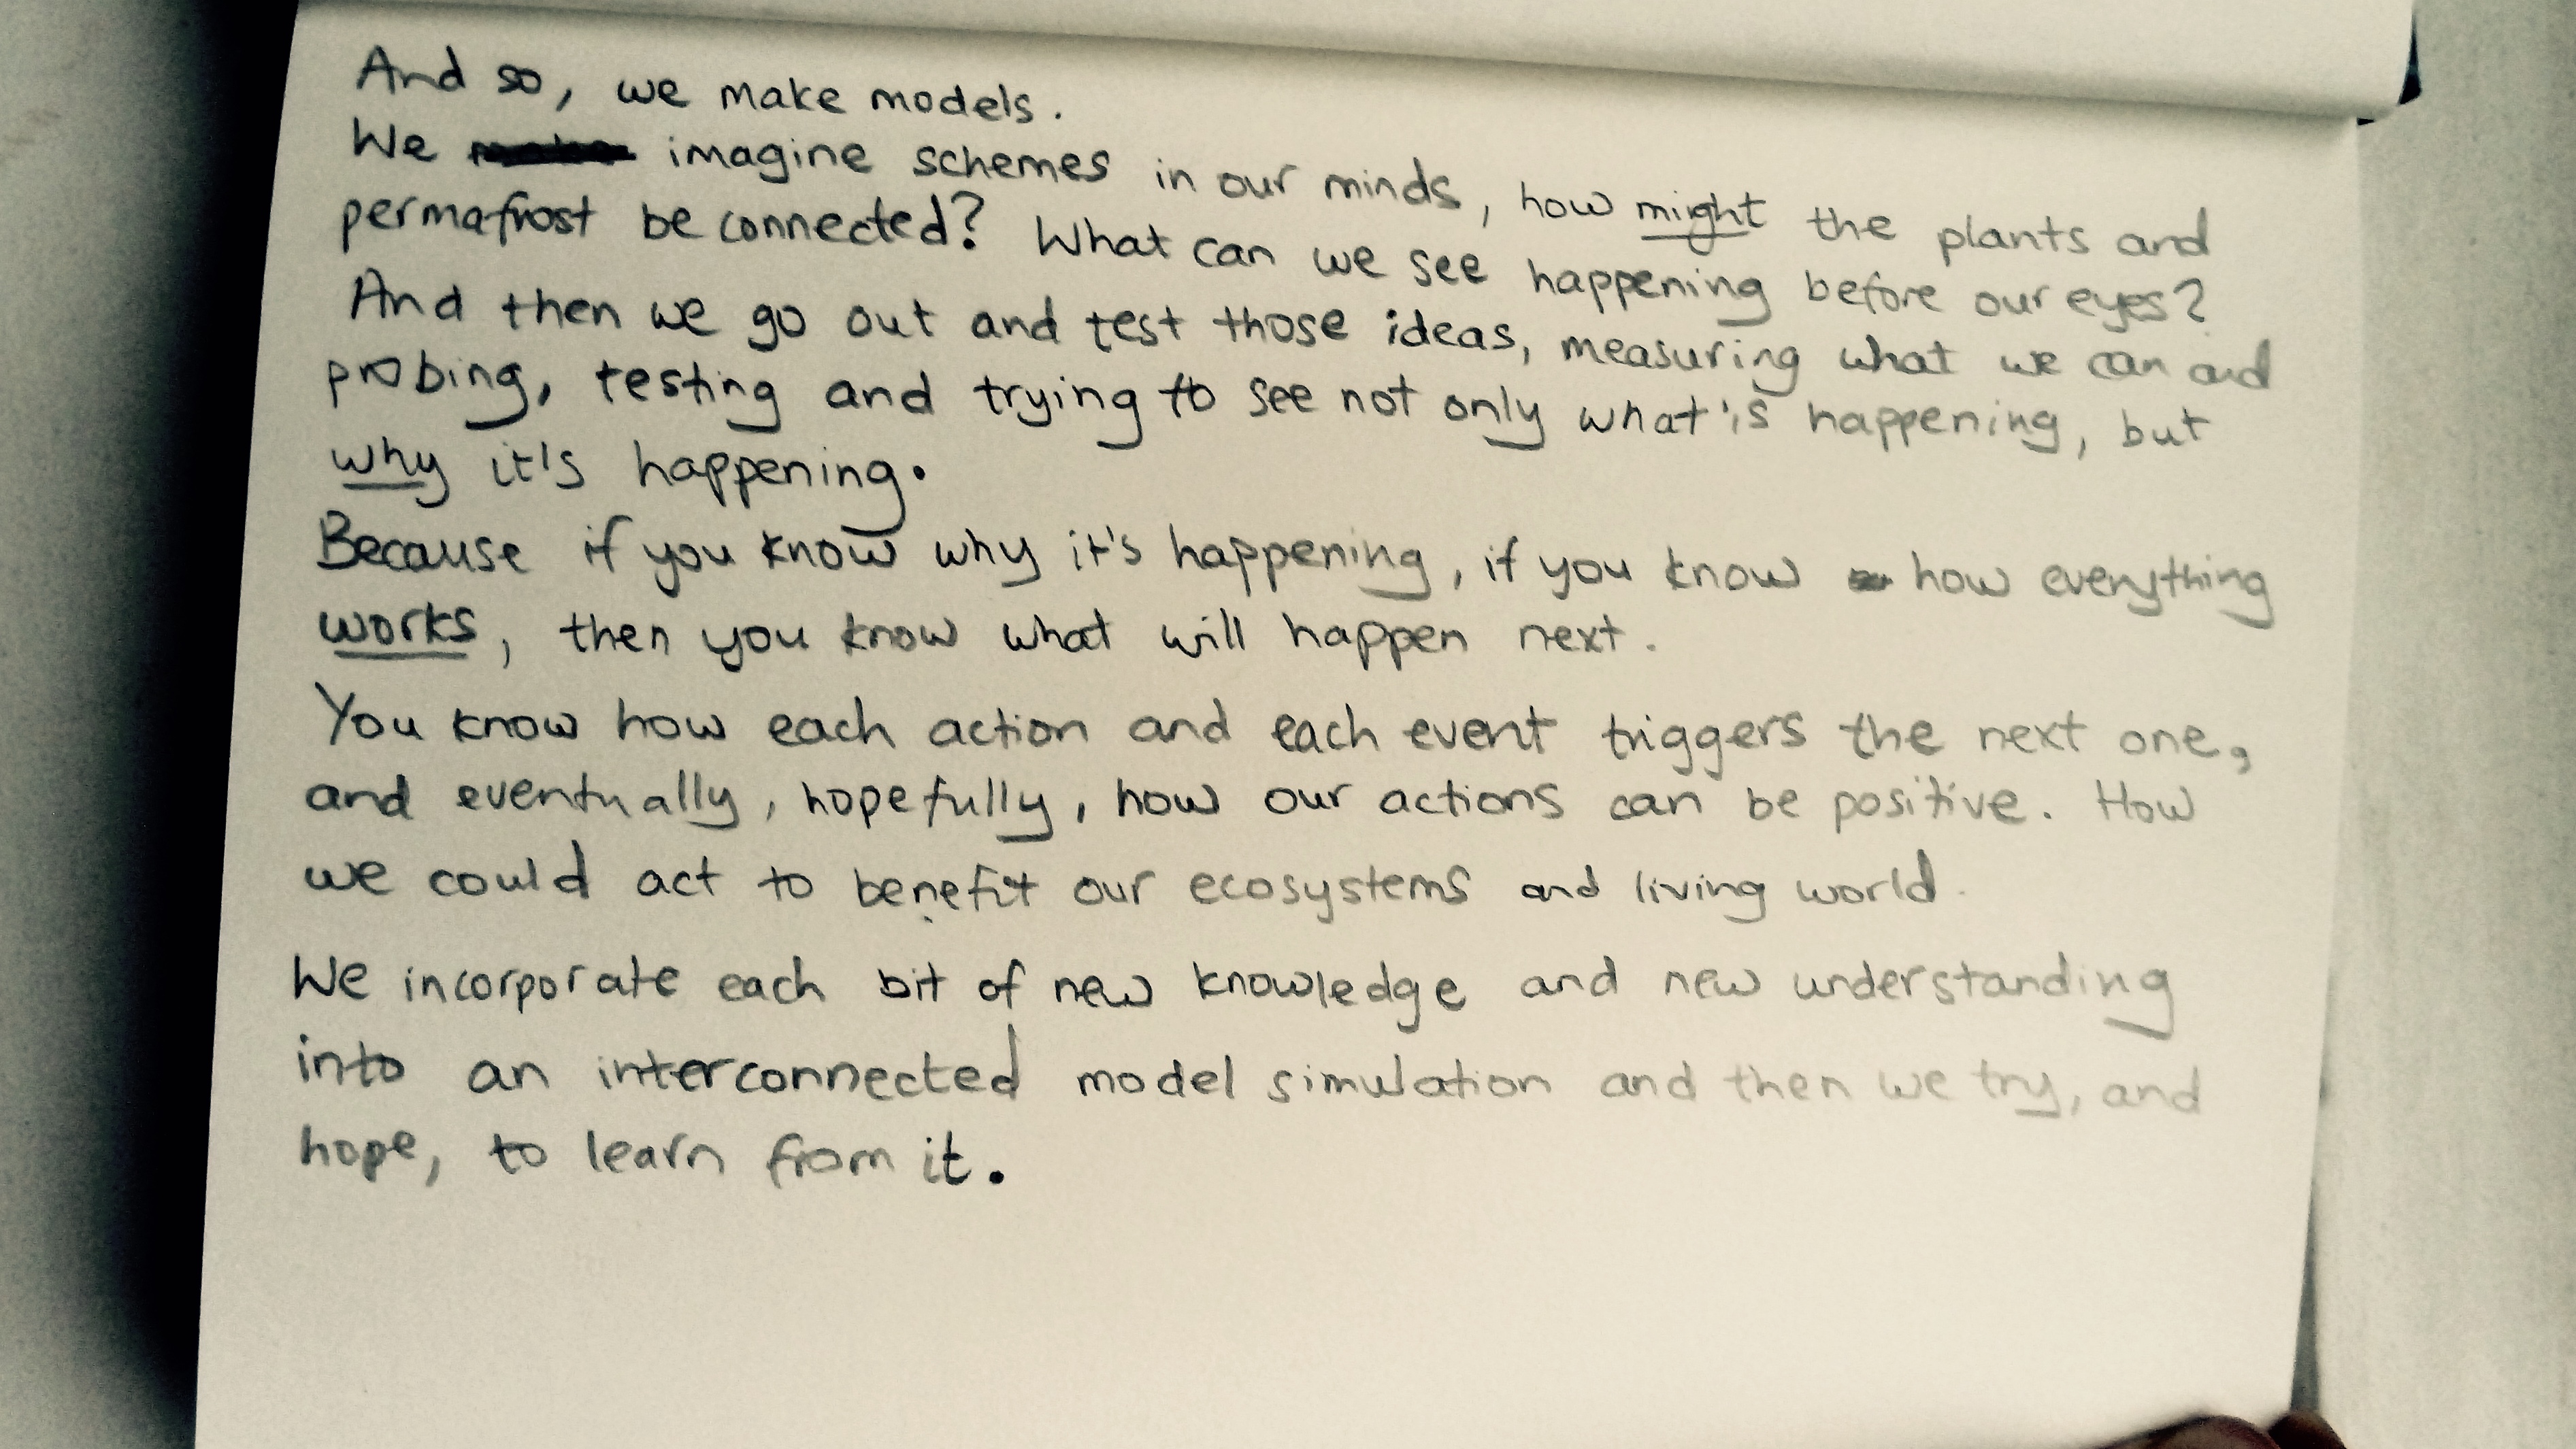 And so, we make models.
We imagine schemes in our minds, how might the plants and
permafrost be connected? What can we see happening before our eyes?
And then we go out and test those ideas, measuring what we can and
probing, testing and trying to see not only what's happening, but
why it's happening.
Because if you know why it's happening, if you know how everything
works, then you know what will happen next.
You know how each action and each event triggers the next one,
and eventually, hopefully, how our actions can be positive. How
we could act to benefit our ecosystems and living world.
We incorporate each bit of new knowledge and new understanding
into an interconnected model simulation and then we try, and
hope, to learn from it.